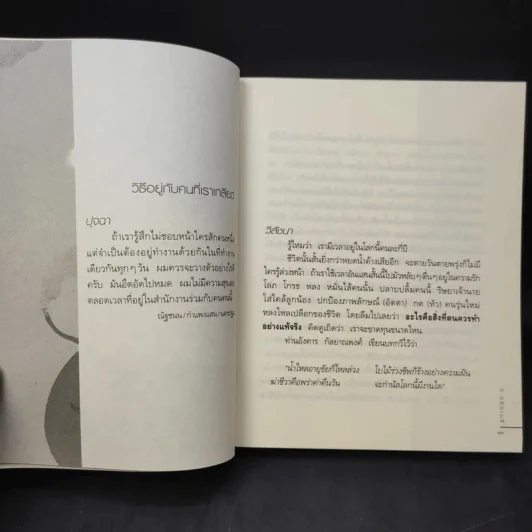 วิธีอยู่กับคนที่เราเกลียด
ปุจฉา
ถ้าเรารู้สึกไม่ชอบหน้าใครสักคนหนึ่ง
แต่จำเป็นต้องอยู่ทำงานด้วยกันในที่ทำงาน
เดียวกันทุกๆ วัน ผมควรจะวางตัวอย่างไรดี
ครับ มันอึดอัดไปหมด ผมไม่มีความสุขเลย
ตลอดเวลาที่อยู่ในสำนักงานร่วมกับคนคนนี้
ณัฐชนน/กำแพงแสน/นครปฐม
วิสัชนา
รู้ไหมว่า เรามีเวลาอยู่ในโลกนี้คนละกี่ปี
ชีวิตนั้นสั้นยิ่งกว่าหยดน้ำค้างเสียอีก จะตายวันตายพรุ่งก็ไม่มี
ใครรู้ล่วงหน้า ถ้าเราใช้เวลาอันแสนสั้นนี้ไปมัวหลับๆ ตื่นๆ อยู่ในความรัก
โลภ โกรธ หลง หมั่นไส้คนนั้น ปลาบปลื้มคนนี้ ริษยาเจ้านาย
ใส่ไคล้ลูกน้อง ปกป้องภาพลักษณ์ (อัตตา) กด (หัว) คนรุ่นใหม่
หลงใหลเปลือกของชีวิต โดยลืมไปเลยว่า อะไรคือสิ่งที่ตนควรทำ
อย่างแท้จริง คิดดูเถิดว่า เราจะขาดทุนขนาดไหน
ท่านอังคาร กัลยาณพงศ์ เขียนบทกวีไว้ว่า
"น้ำไหลอายุขัยก็ไหลล่วง ใบไม้ร่วงชีพก็ร้างอย่างความฝัน
ฆ่าชีวาคือพร่าค่าคืนวัน จะกำนัลโลกนี้มีงานใด"